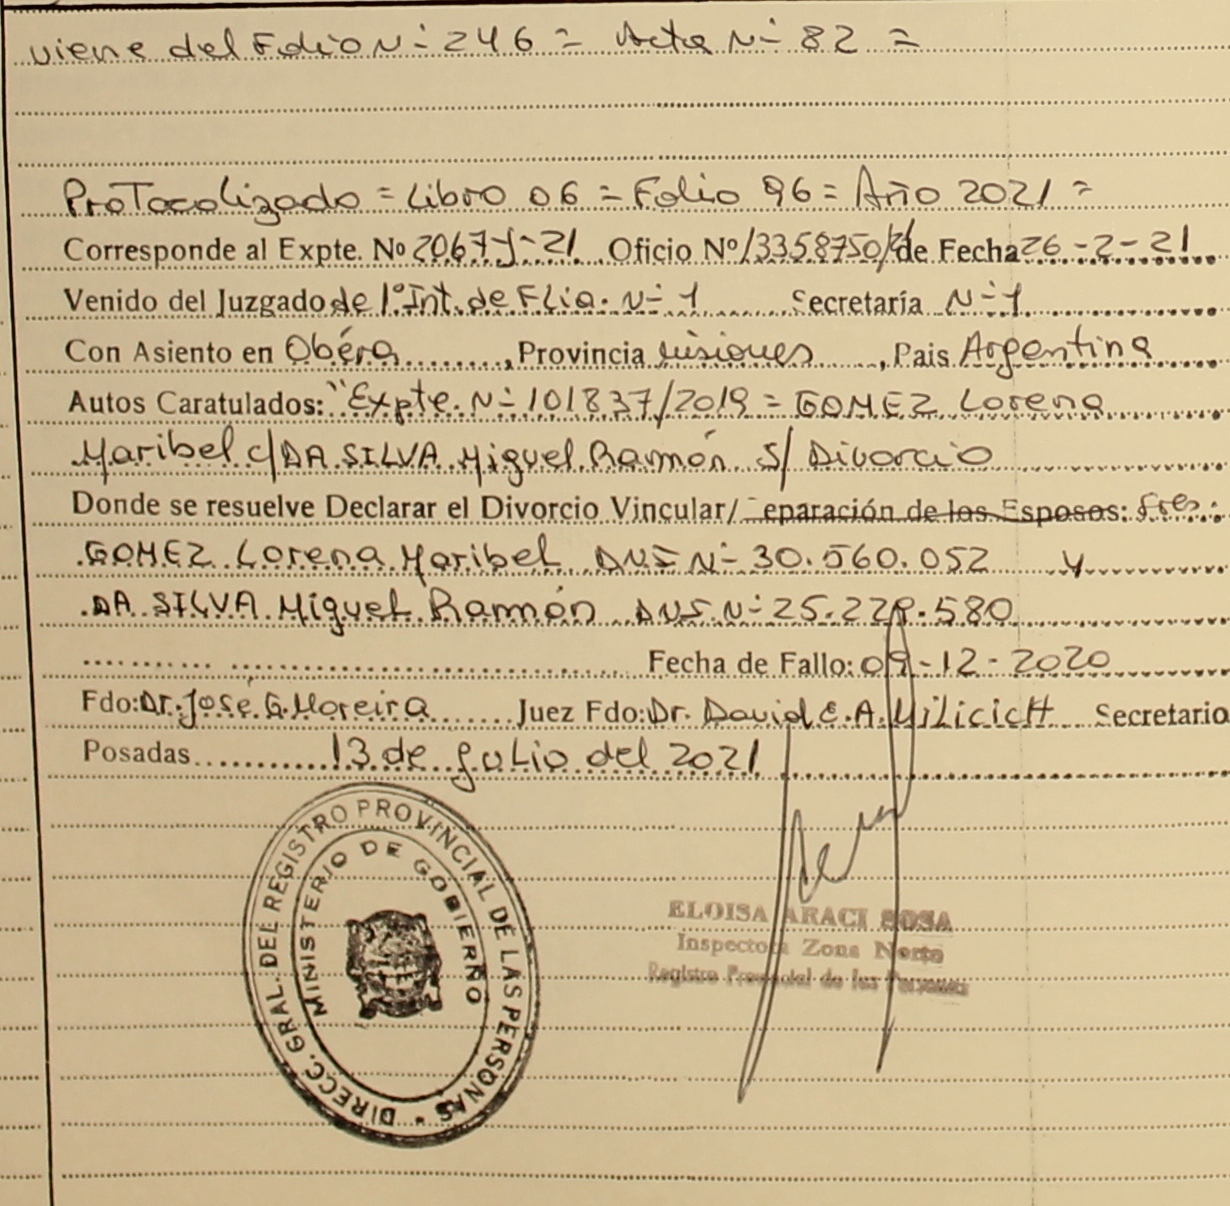 viene del Folio N- 246 = Acta N- 82 =
Protocolizado = Libro 06 = Folio 96 = Año 2021 =
Corresponde al Expte. Nº 2067-J-21 Oficio Nº 13358750/21 de Fecha 26-2-21
Venido del Juzgado de 1º Int. de Flia. N- 1 Secretaría N- 1
Con Asiento en Obéra, Provincia Misiones, Pais Argentina
Autos Caratulados: "Expte. N- 101837/2019 = GOMEZ Lorena
Maribel c/DA SILVA Miguel Ramón S/ Divorcio
Donde se resuelve Declarar el Divorcio Vincular/ eparación de los Esposos: Sres:
GOMEZ Lorena Maribel DNI N- 30.560.052 y
DA SILVA Miguel Ramón DNI N- 25.229.580
Fecha de Fallo: 09-12-2020
Fdo: Dr. José G. Moreira Juez Fdo: Dr. David E. A. Milicich Secretario
Posadas 13 de Julio del 2021
DIRECC. GRAL. DEL REGISTRO PROVINCIAL DE LAS PERSONAS
MINISTERIO DE GOBIERNO
ELOISA ARACI SOSA
Inspectora Zona Norte
Registro Provincial de las Personas